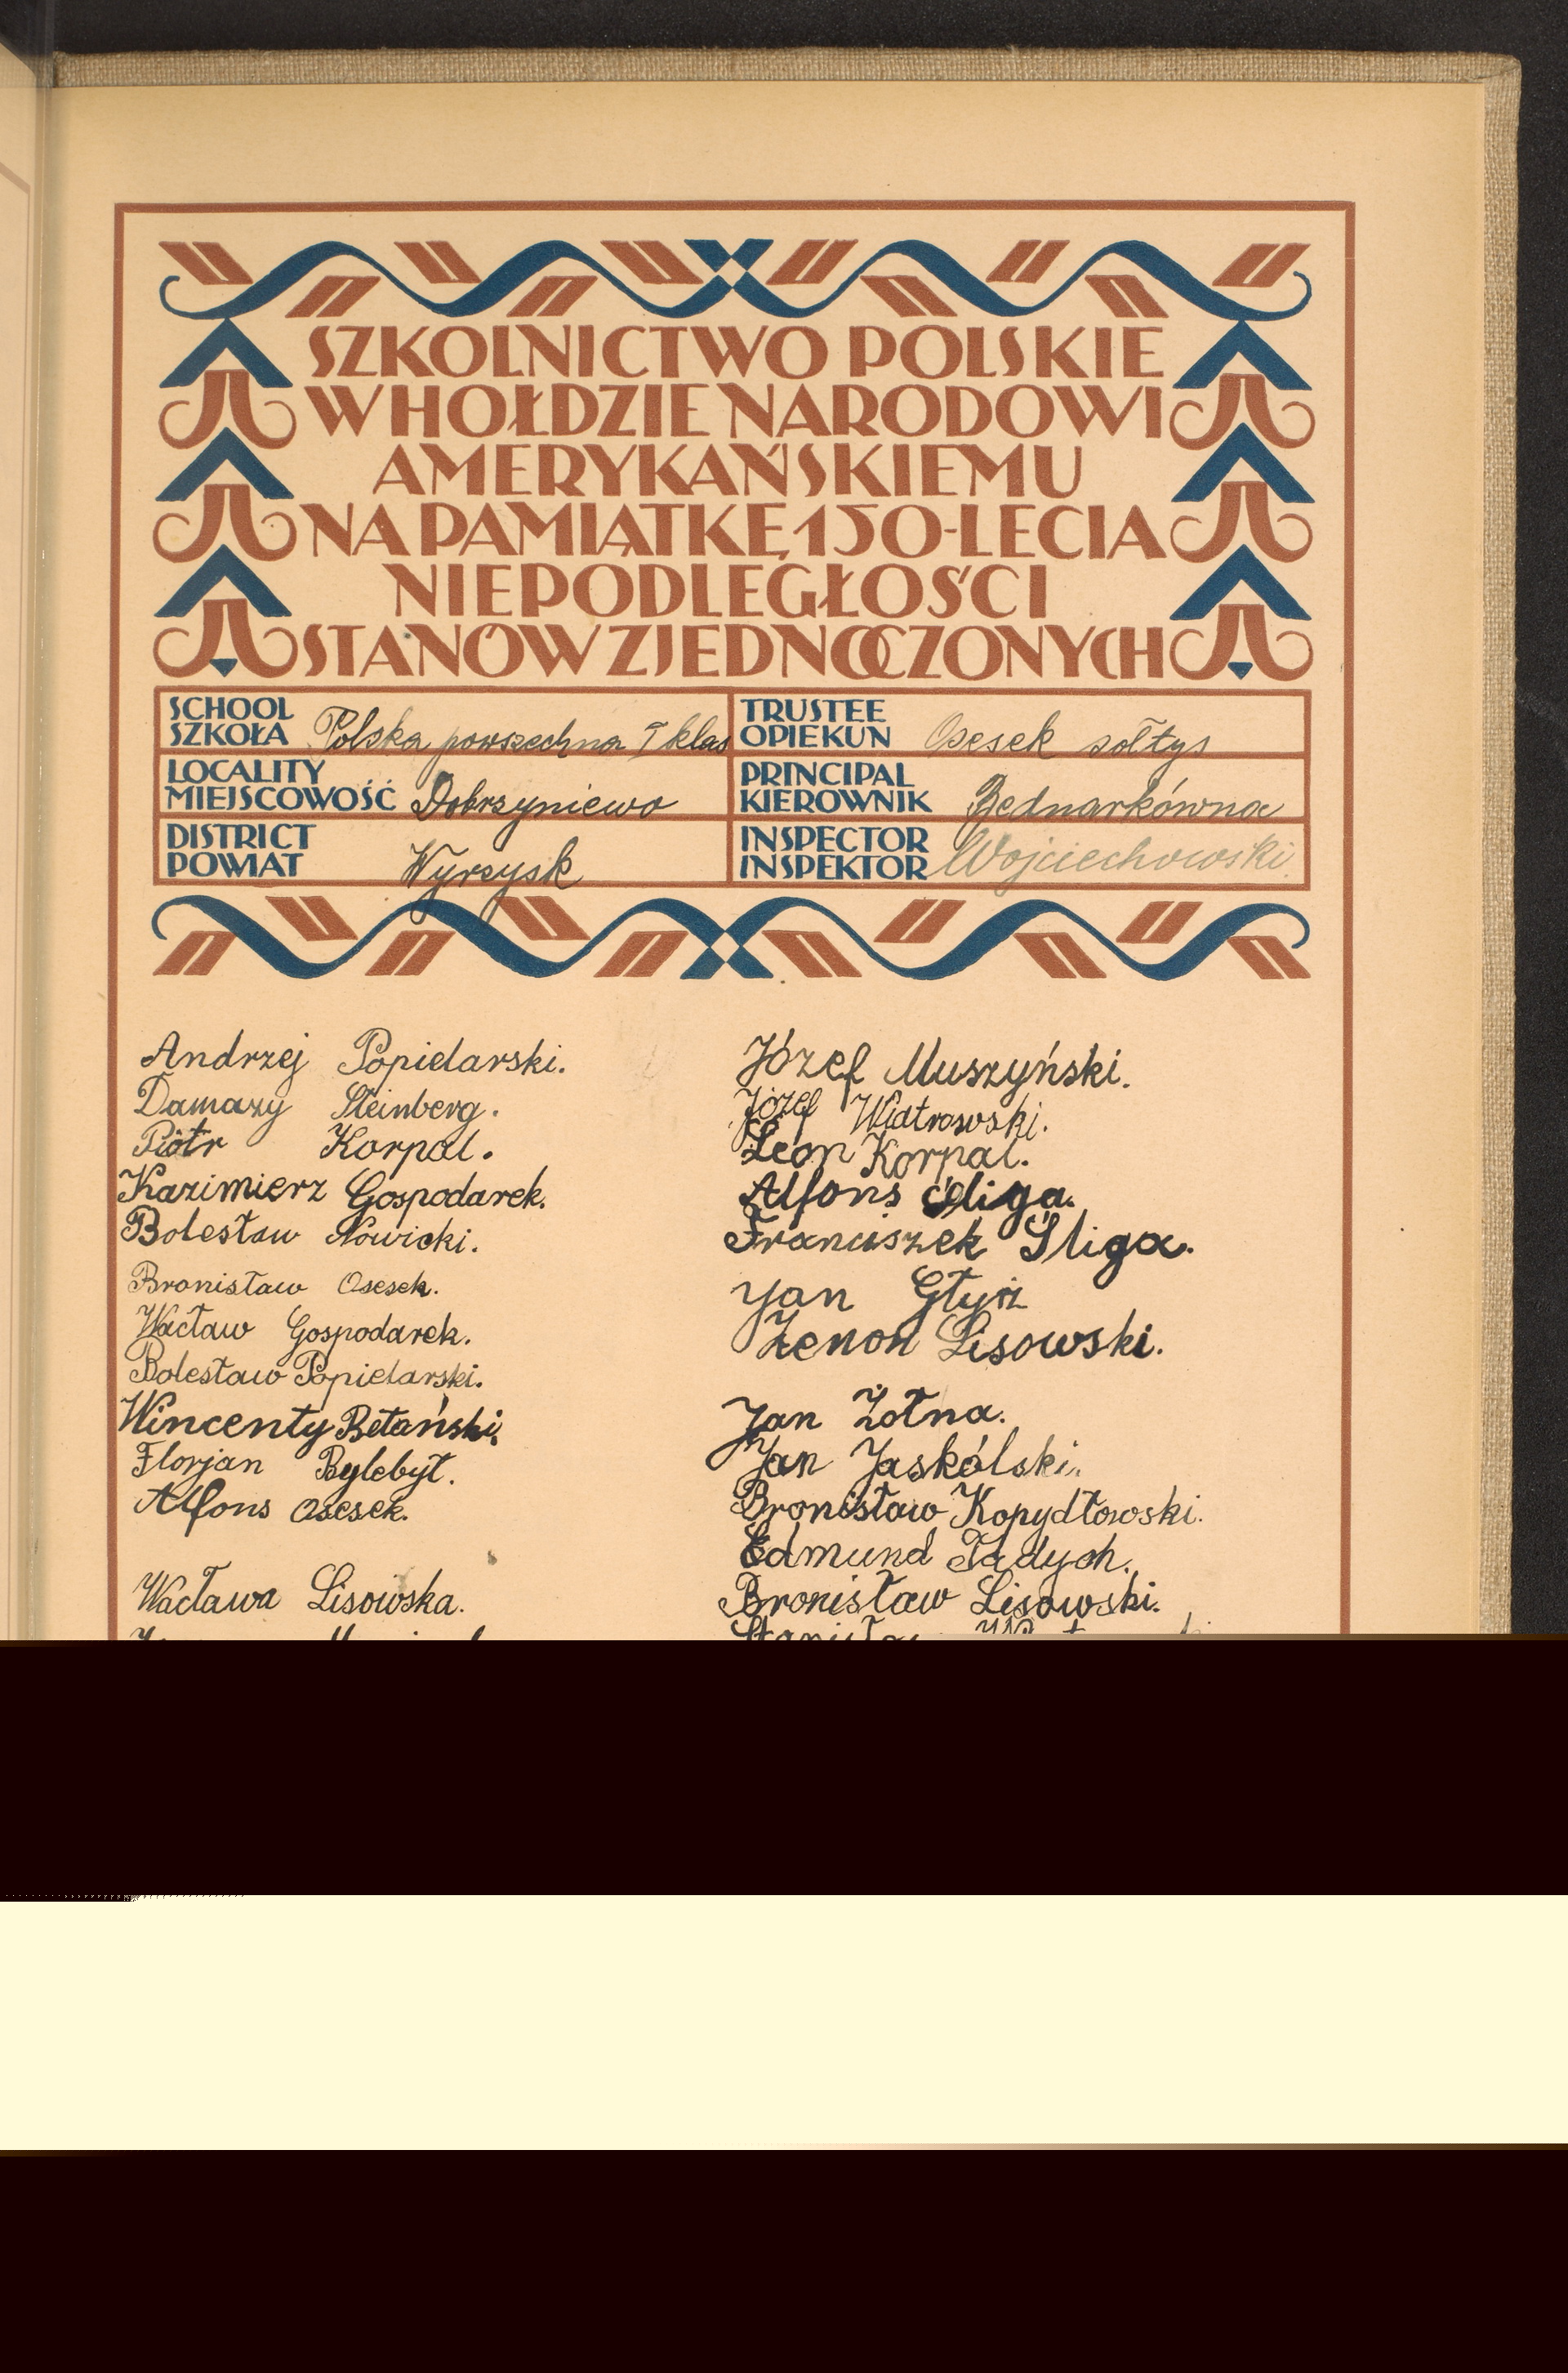 SZKOLNICTWO POLSKIE
W HOŁDZIE NARODOWI
AMERYKAŃSKIEMU
NA PAMIĄTKĘ 150-LECIA
NIEPODLEGŁOŚCI
STANÓW ZJEDNOCZONYCH
SCHOOL
SZKOŁA Polska powszechna I klas
TRUSTEE
OPIEKUN Osesek sołtys
LOCALITY
MIEJSCOWOŚĆ Dobrzyniewo
PRINCIPAL
KIEROWNIK Bednarkówna
DISTRICT
POWIAT Wyrzysk
INSPECTOR
INSPEKTOR Wojciechowski.
Andrzej Popielarski.
Damazy Steinberg.
Piotr Korpal.
Kazimierz Gospodarek.
Bolesław Nowicki.
Bronisław Osesek.
Wacław Gospodarek.
Bolesław Popielarski.
Wincenty Betański.
Florjan Bylebył.
Alfons Osesek.
Wacława Lisowska.
Józef Muszyński.
Józef Wiatrowski.
Leon Korpal.
Alfons Śliga.
Franciszek Śliga.
Jan Głyż
Zenon Lisowski.
Jan Żołna.
Jan Jaskólski.
Bronisław Kopydłowski.
Edmund Tadych.
Bronisław Lisowski.